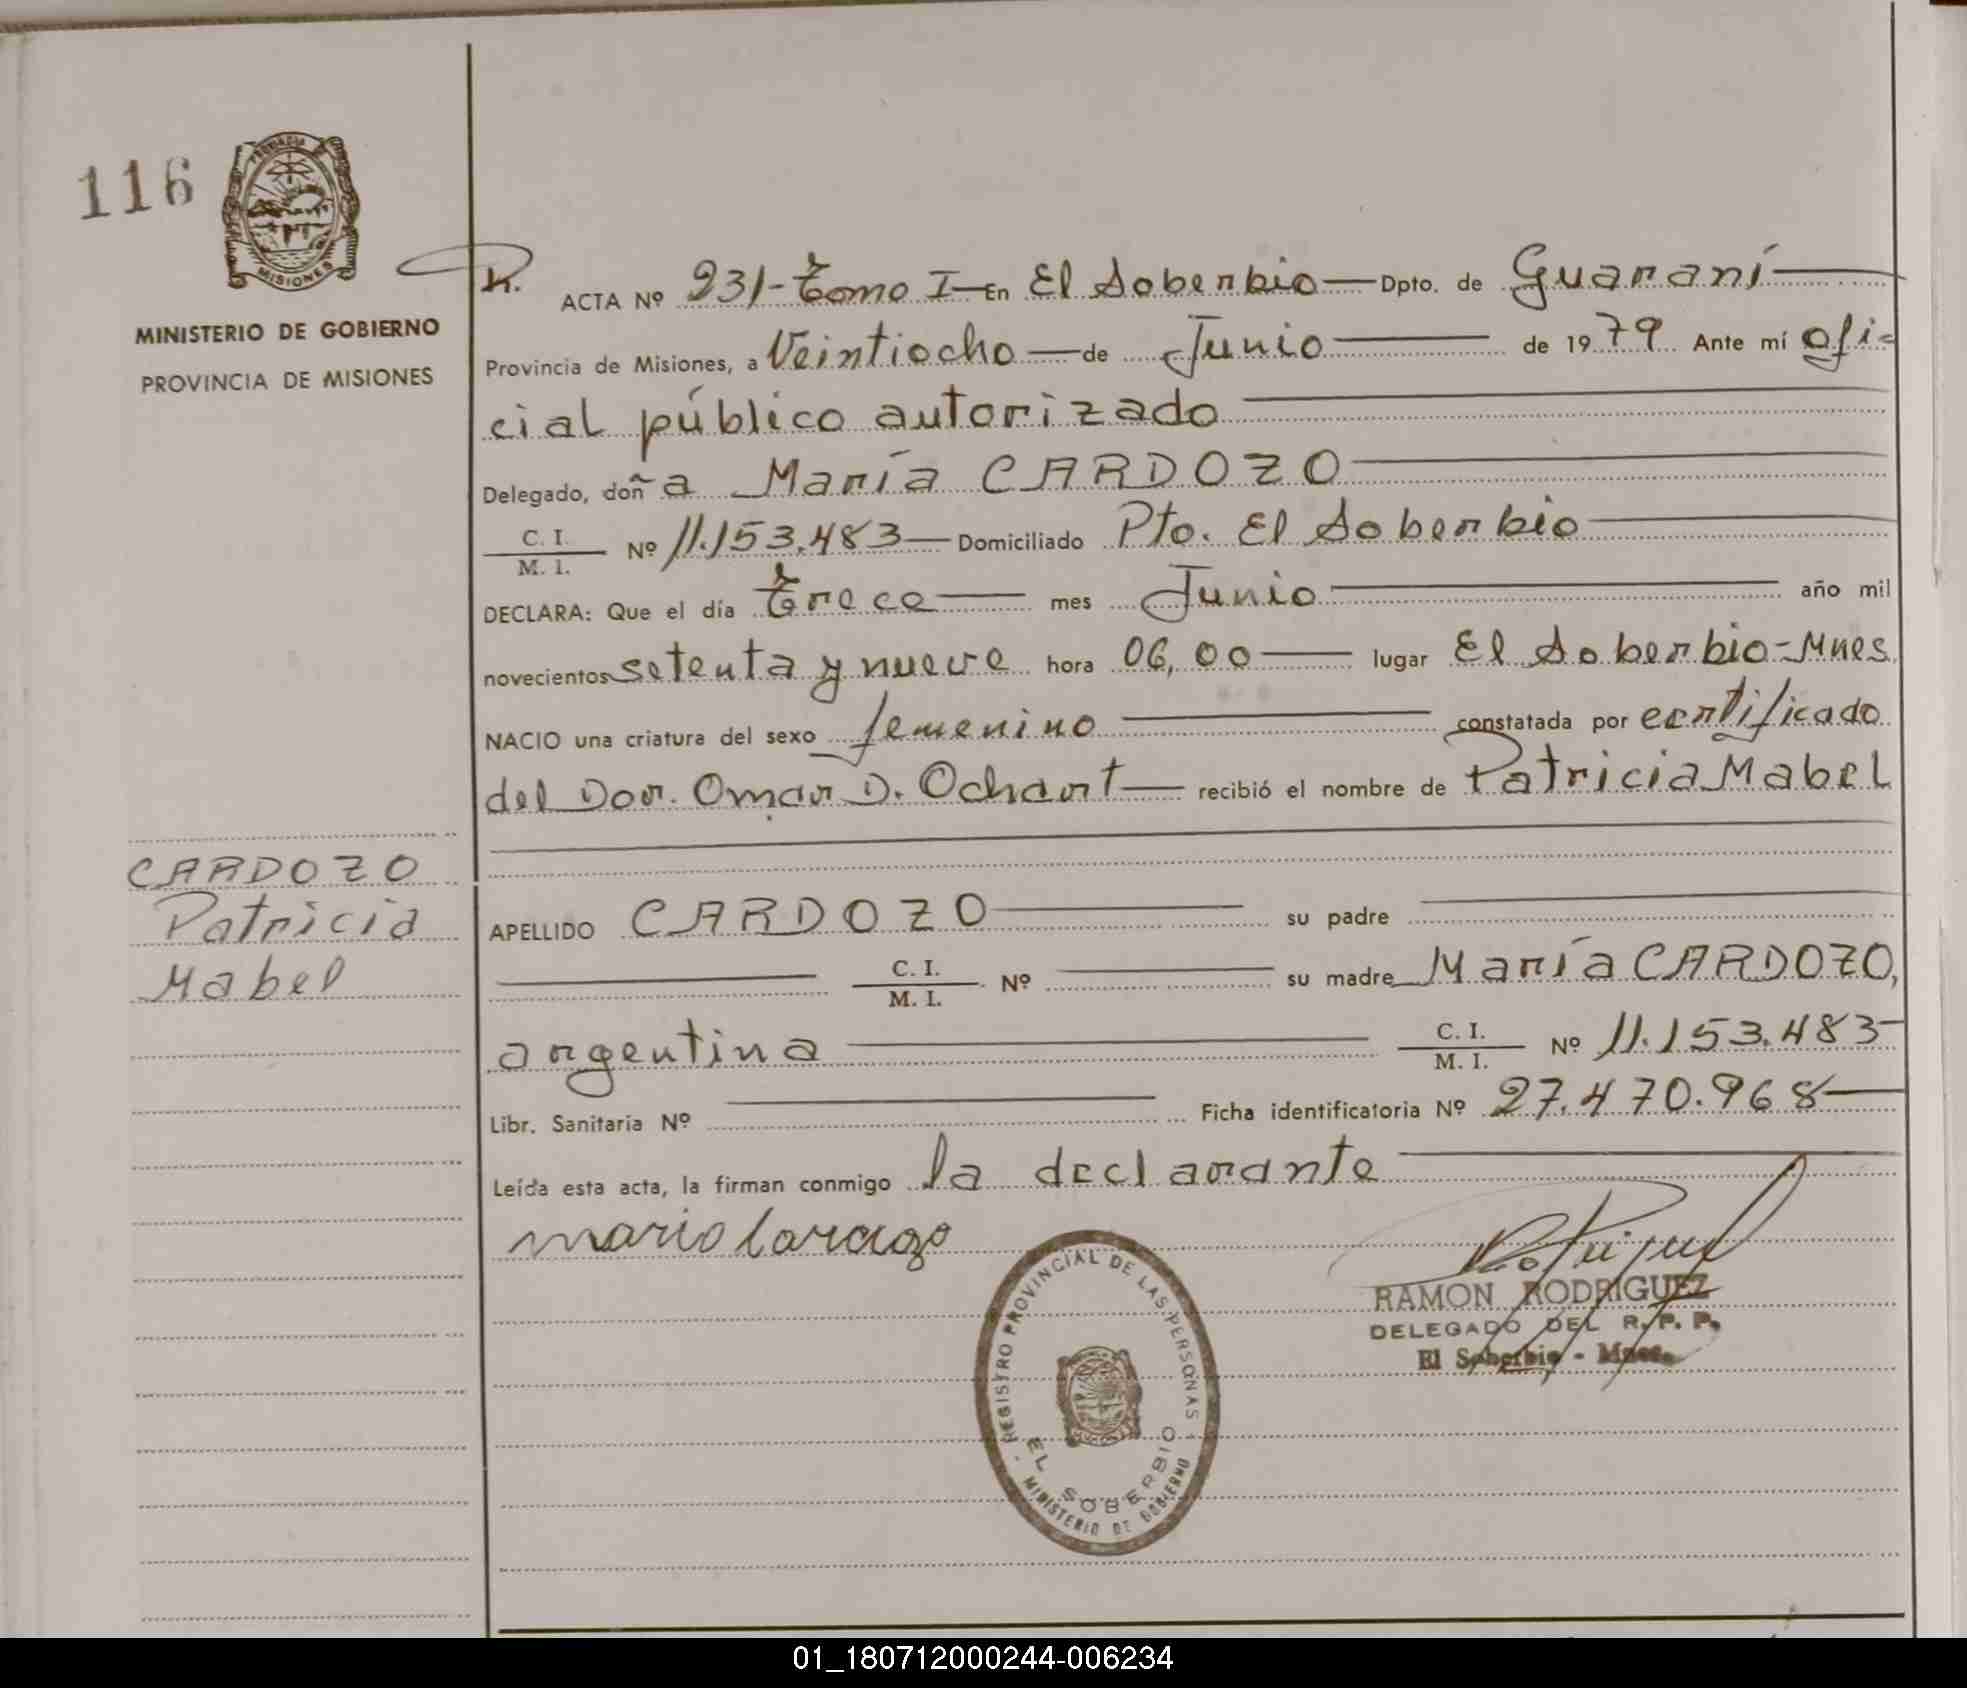 116
PROVINCIA
MISIONES
MINISTERIO DE GOBIERNO
PROVINCIA DE MISIONES
ACTA Nº 231-Tomo I-En El Soberbio-Dpto. de Guaraní
Provincia de Misiones, a Veintiocho de Junio de 1979 Ante mí ofi-
cial público autorizado
Delegado, doña María CARDOZO
C. I.
M. I. Nº 11.153.483 Domiciliado Pto. El Soberbio
DECLARA: Que el día Trece mes Junio año mil
novecientos setenta y nueve hora 06,00 lugar El Soberbio-Mnes
NACIO una criatura del sexo femenino constatada por certificado
del Dor. Omar D. Ochart recibió el nombre de Patricia Mabel
CARDOZO
Patricia
Mabel
APELLIDO CARDOZO su padre
C. I.
M. I. Nº su madre María CARDOZO,
argentina C. I.
M. I. Nº 11.153.483
Libr. Sanitaria Nº Ficha identificatoria Nº 27.470.968
Leída esta acta, la firman conmigo la declarante
RAMON RODRIGUEZ
DELEGADO DEL R. P. P.
El Soberbio - Mnes.
REGISTRO PROVINCIAL DE LAS PERSONAS
EL SOBERBIO
MINISTERIO DE GOBIERNO
01_180712000244-006234